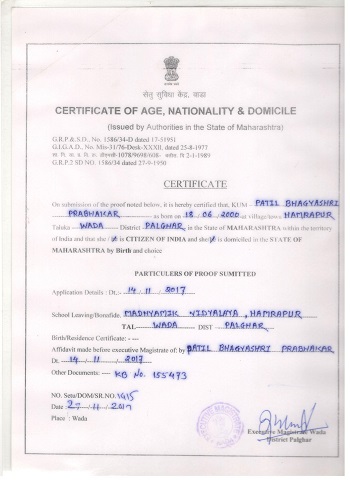 सेतु सुविधा केंद्र, वाडा
CERTIFICATE OF AGE, NATIONALITY & DOMICILE
(Issued by Authorities in the State of Maharashtra)
G.R.P & S.D., No. 1586/34-D dated 17-51951
G.I.G.A.D., No. Mis-31/76-Desk-XXXII, dated 25-8-1977
G.R.P.2 SD NO. 1586/34 dated 27-9-1950
CERTIFICATE
On submission of the proof noted below, it is hereby certified that, KUM - PATIL BHAGYASHRI
PRABHAKAR as born on 18/06/2000 at village/town HAMRAPUR
Taluka - WADA - District PALGHAR in the State of MAHARASHTRA within the territory
of India and that she is CITIZEN OF INDIA and she is domiciled in the STATE OF
MAHARASHTRA by Birth and choice
PARTICULERS OF PROOF SUMITTED
Application Details : Dt.:- 14 / 11 / 2017
School Leaving/Bonafide, MADHYAMIK VIDYALAYA, HAMRAPUR
TAL WADA DIST PALGHAR
Birth/Residence Certificate: ---
Affidavit made before executive Magistrate of: by PATIL BHAGYASHRI PRABHAKAR
Dt. 14 / 11 / 2017
Other Documents: ---- KB No. 155473
NO. Setu/DOM/SR.NO. 1415
Date : 27/11/2017
Place : Wada
Executive Magistrate Wada
District Palghar